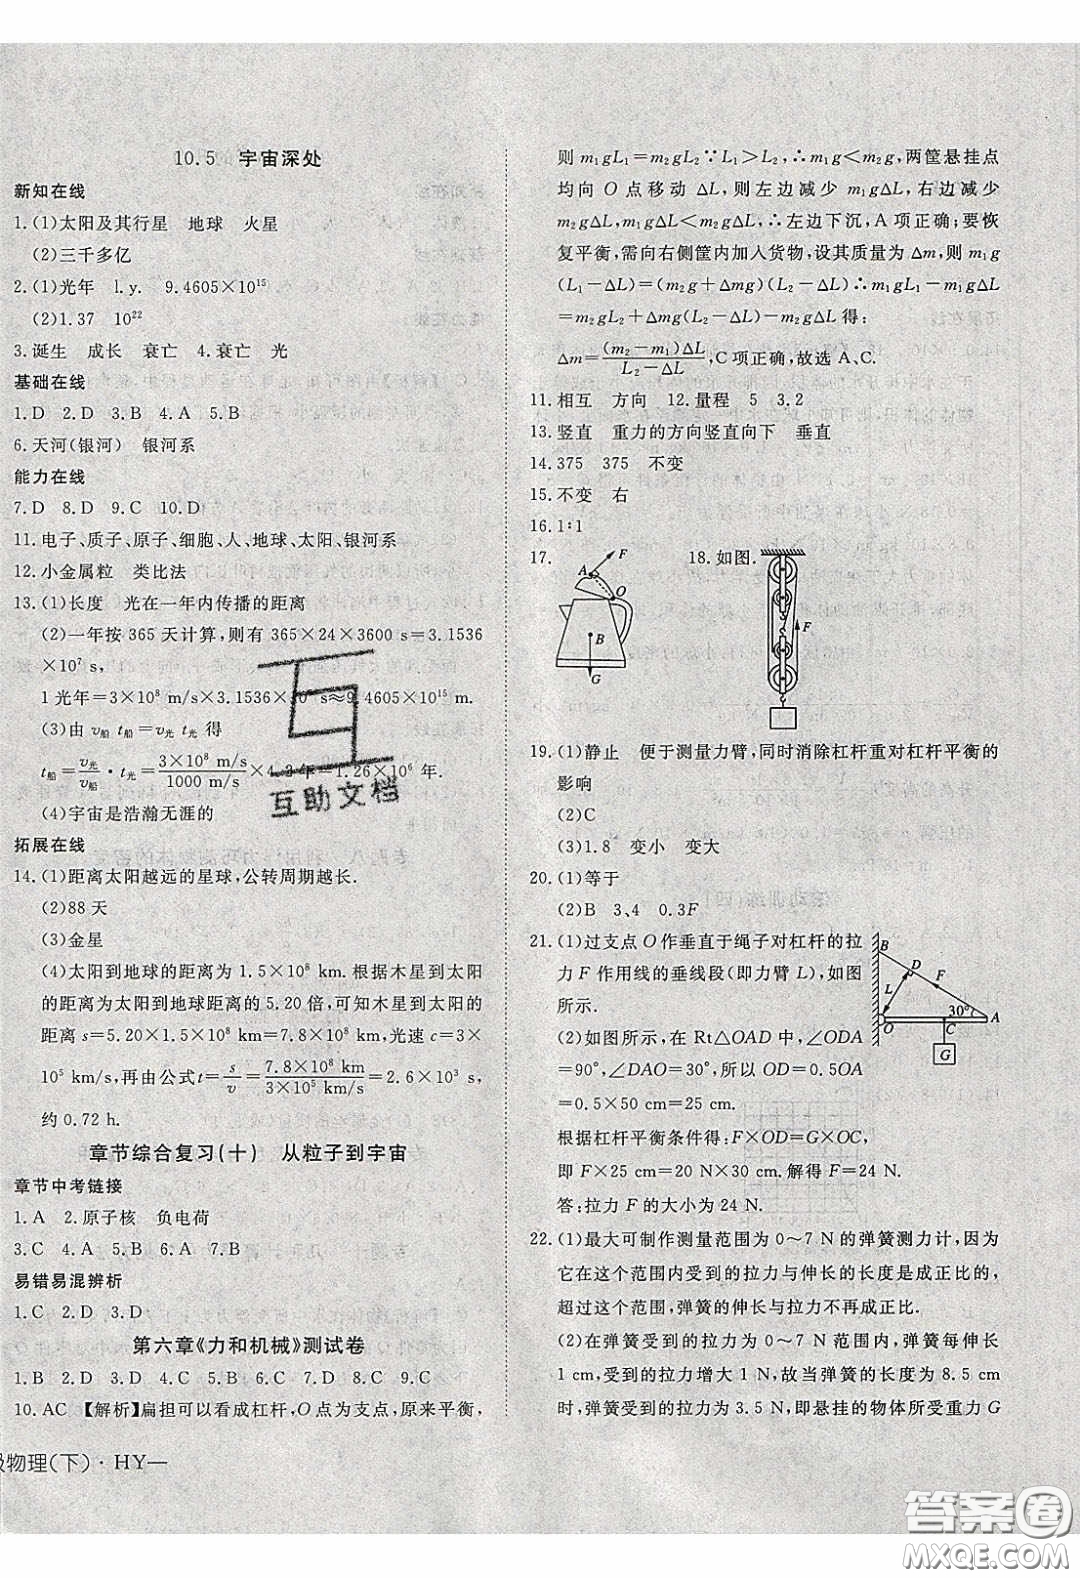 10.5 宇宙深处
新知在线
1.(1)太阳及其行星 地球 火星
(2)三千多亿
2.(1)光年 l.y. 9.4605×10¹⁵
(2)1.37 10²²
3.诞生 成长 衰亡 4.衰亡 光
基础在线
1.D 2.D 3.B 4.A 5.B
6.天河(银河) 银河系
能力在线
7.D 8.D 9.C 10.D
11.电子、质子、原子、细胞、人、地球、太阳、银河系
12.小金属粒 类比法
13.(1)长度 光在一年内传播的距离
(2)一年按 365 天计算,则有 365×24×3600 s=3.1536
×10⁷ s,
1光年=3×10⁸ m/s×3.1536×10⁷ s≈9.4605×10¹⁵ m.
(3)由 v船 t船=v光 t光 得
t船=v光/v船·t光=3×10⁸ m/s/1000 m/s×4.2年=1.26×10⁶ 年.
(4)宇宙是浩瀚无涯的
拓展在线
14.(1)距离太阳越远的星球,公转周期越长.
(2)88 天
(3)金星
(4)太阳到地球的距离为 1.5×10⁸ km.根据木星到太阳
的距离为太阳到地球距离的 5.20 倍,可知木星到太阳的
距离 s=5.20×1.5×10⁸ km=7.8×10⁸ km,光速 c=3×
10⁵ km/s,再由公式 t=s/v=7.8×10⁸ km/3×10⁵ km/s=2.6×10³ s,
约 0.72 h.
章节综合复习(十) 从粒子到宇宙
章节中考链接
1.A 2.原子核 负电荷
3.C 4.A 5.B 6.A 7.B
易错易混辨析
1.C 2.D 3.D
第六章《力和机械》测试卷
1.B 2.D 3.D 4.C 5.C 6.C 7.D 8.C 9.C
10.AC 【解析】扁担可以看成杠杆,O点为支点,原来平衡,
级物理(下)·HY—
则 m₁gL₁=m₂gL₂∵L₁>L₂,∴m₁g<m₂g,两筐悬挂点
均向 O 点移动 ΔL,则左边减少 m₁gΔL,右边减少
m₂gΔL,m₁gΔL<m₂gΔL,∴左边下沉,A 项正确;要恢
复平衡,需向右侧筐内加入货物,设其质量为 Δm,则 m₁g
(L₁-ΔL)=(m₂g+Δmg)(L₂-ΔL),m₁gL₁-m₁gΔL
=m₂gL₂+ΔmgL₂-m₂gΔL-ΔmgΔL 得:
Δm=(m₂-m₁)ΔL/L₂-ΔL,C 项正确,故选 A、C.
11.相互 方向 12.量程 5 3.2
13.竖直 重力的方向竖直向下 垂直
14.375 375 不变
15.不变 右
16.1∶1
17. 18.如图.
F
A
O
B
G
F
19.(1)静止 便于测量力臂,同时消除杠杆重对杠杆平衡的
影响
(2)C
(3)1.8 变小 变大
20.(1)等于
(2)B 3、4 0.3F
21.(1)过支点 O 作垂直于绳子对杠杆的拉
力 F 作用线的垂线段(即力臂 L),如图
所示.
(2)如图所示,在 Rt△OAD 中,∠ODA
=90°,∠DAO=30°,所以 OD=0.5OA
=0.5×50 cm=25 cm.
B
D
F
L
30°
O
C
A
G
根据杠杆平衡条件得:F×OD=G×OC,
即 F×25 cm=20 N×30 cm.解得 F=24 N.
答:拉力 F 的大小为 24 N.
22.(1)最大可制作测量范围为 0～7 N 的弹簧测力计,因为
它在这个范围内受到的拉力与伸长的长度是成正比的,
超过这个范围,弹簧的伸长与拉力不再成正比.
(2)在弹簧受到的拉力在 0～7 N 范围内,弹簧每伸长
1 cm,受到的拉力增大 1 N,故当弹簧的长度为 8.5 cm
时,弹簧受到的拉力为 3.5 N,即悬挂的物体所受重力 G
互助文档
答案圈
MXQE.COM